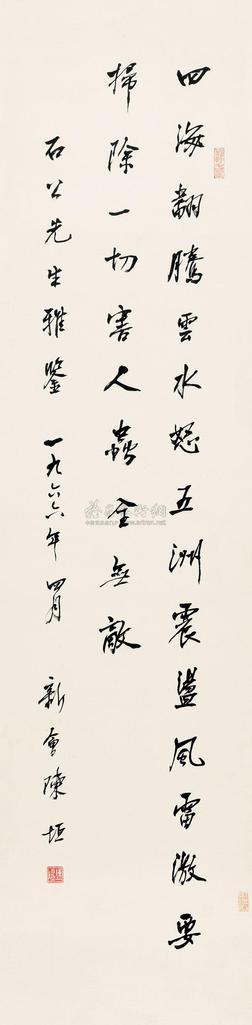 四海翻騰雲水怒五洲震盪風雷激要
掃除一切害人蟲全無敵
石公先生雅鑒 一九六六年四月 新會陳垣